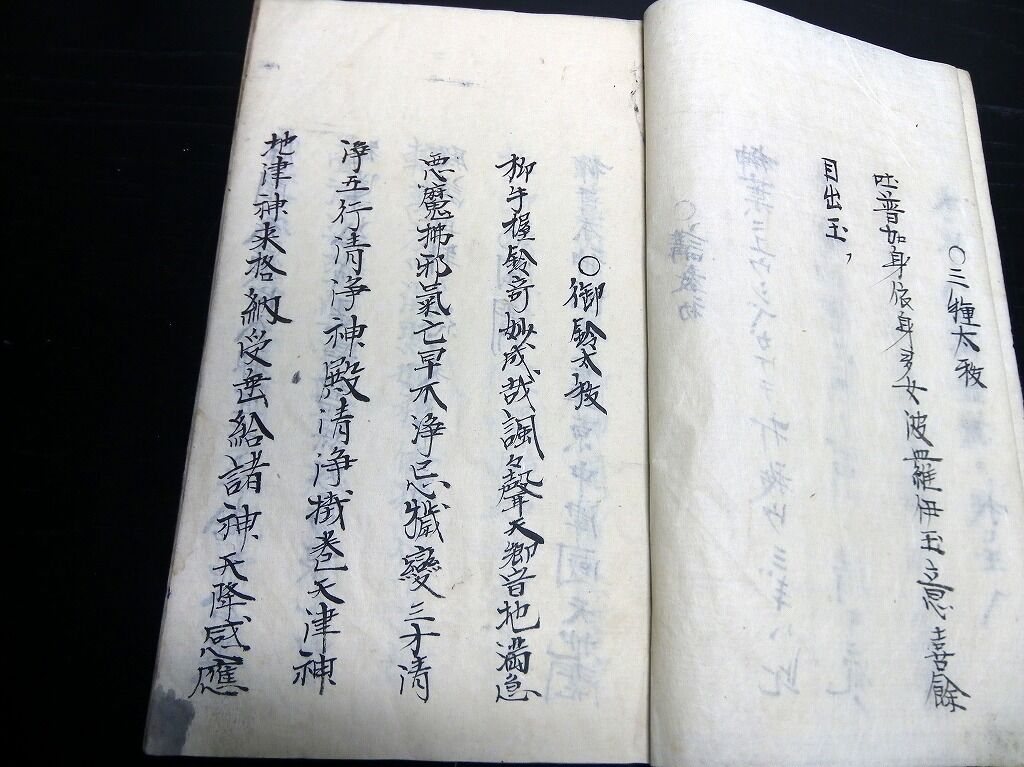 〇三種太祓
吐普加身依身多女波羅伊玉意喜餘
目出玉
〇御鈴太祓
抑手握鈴奇妙成哉諷々聲天郷音地満急
悪魔拂邪氣亡早不浄忌穢變三才清
浄五行清浄神殿清浄掛巻天津神
地津神来格納受垂給諸神天降感應